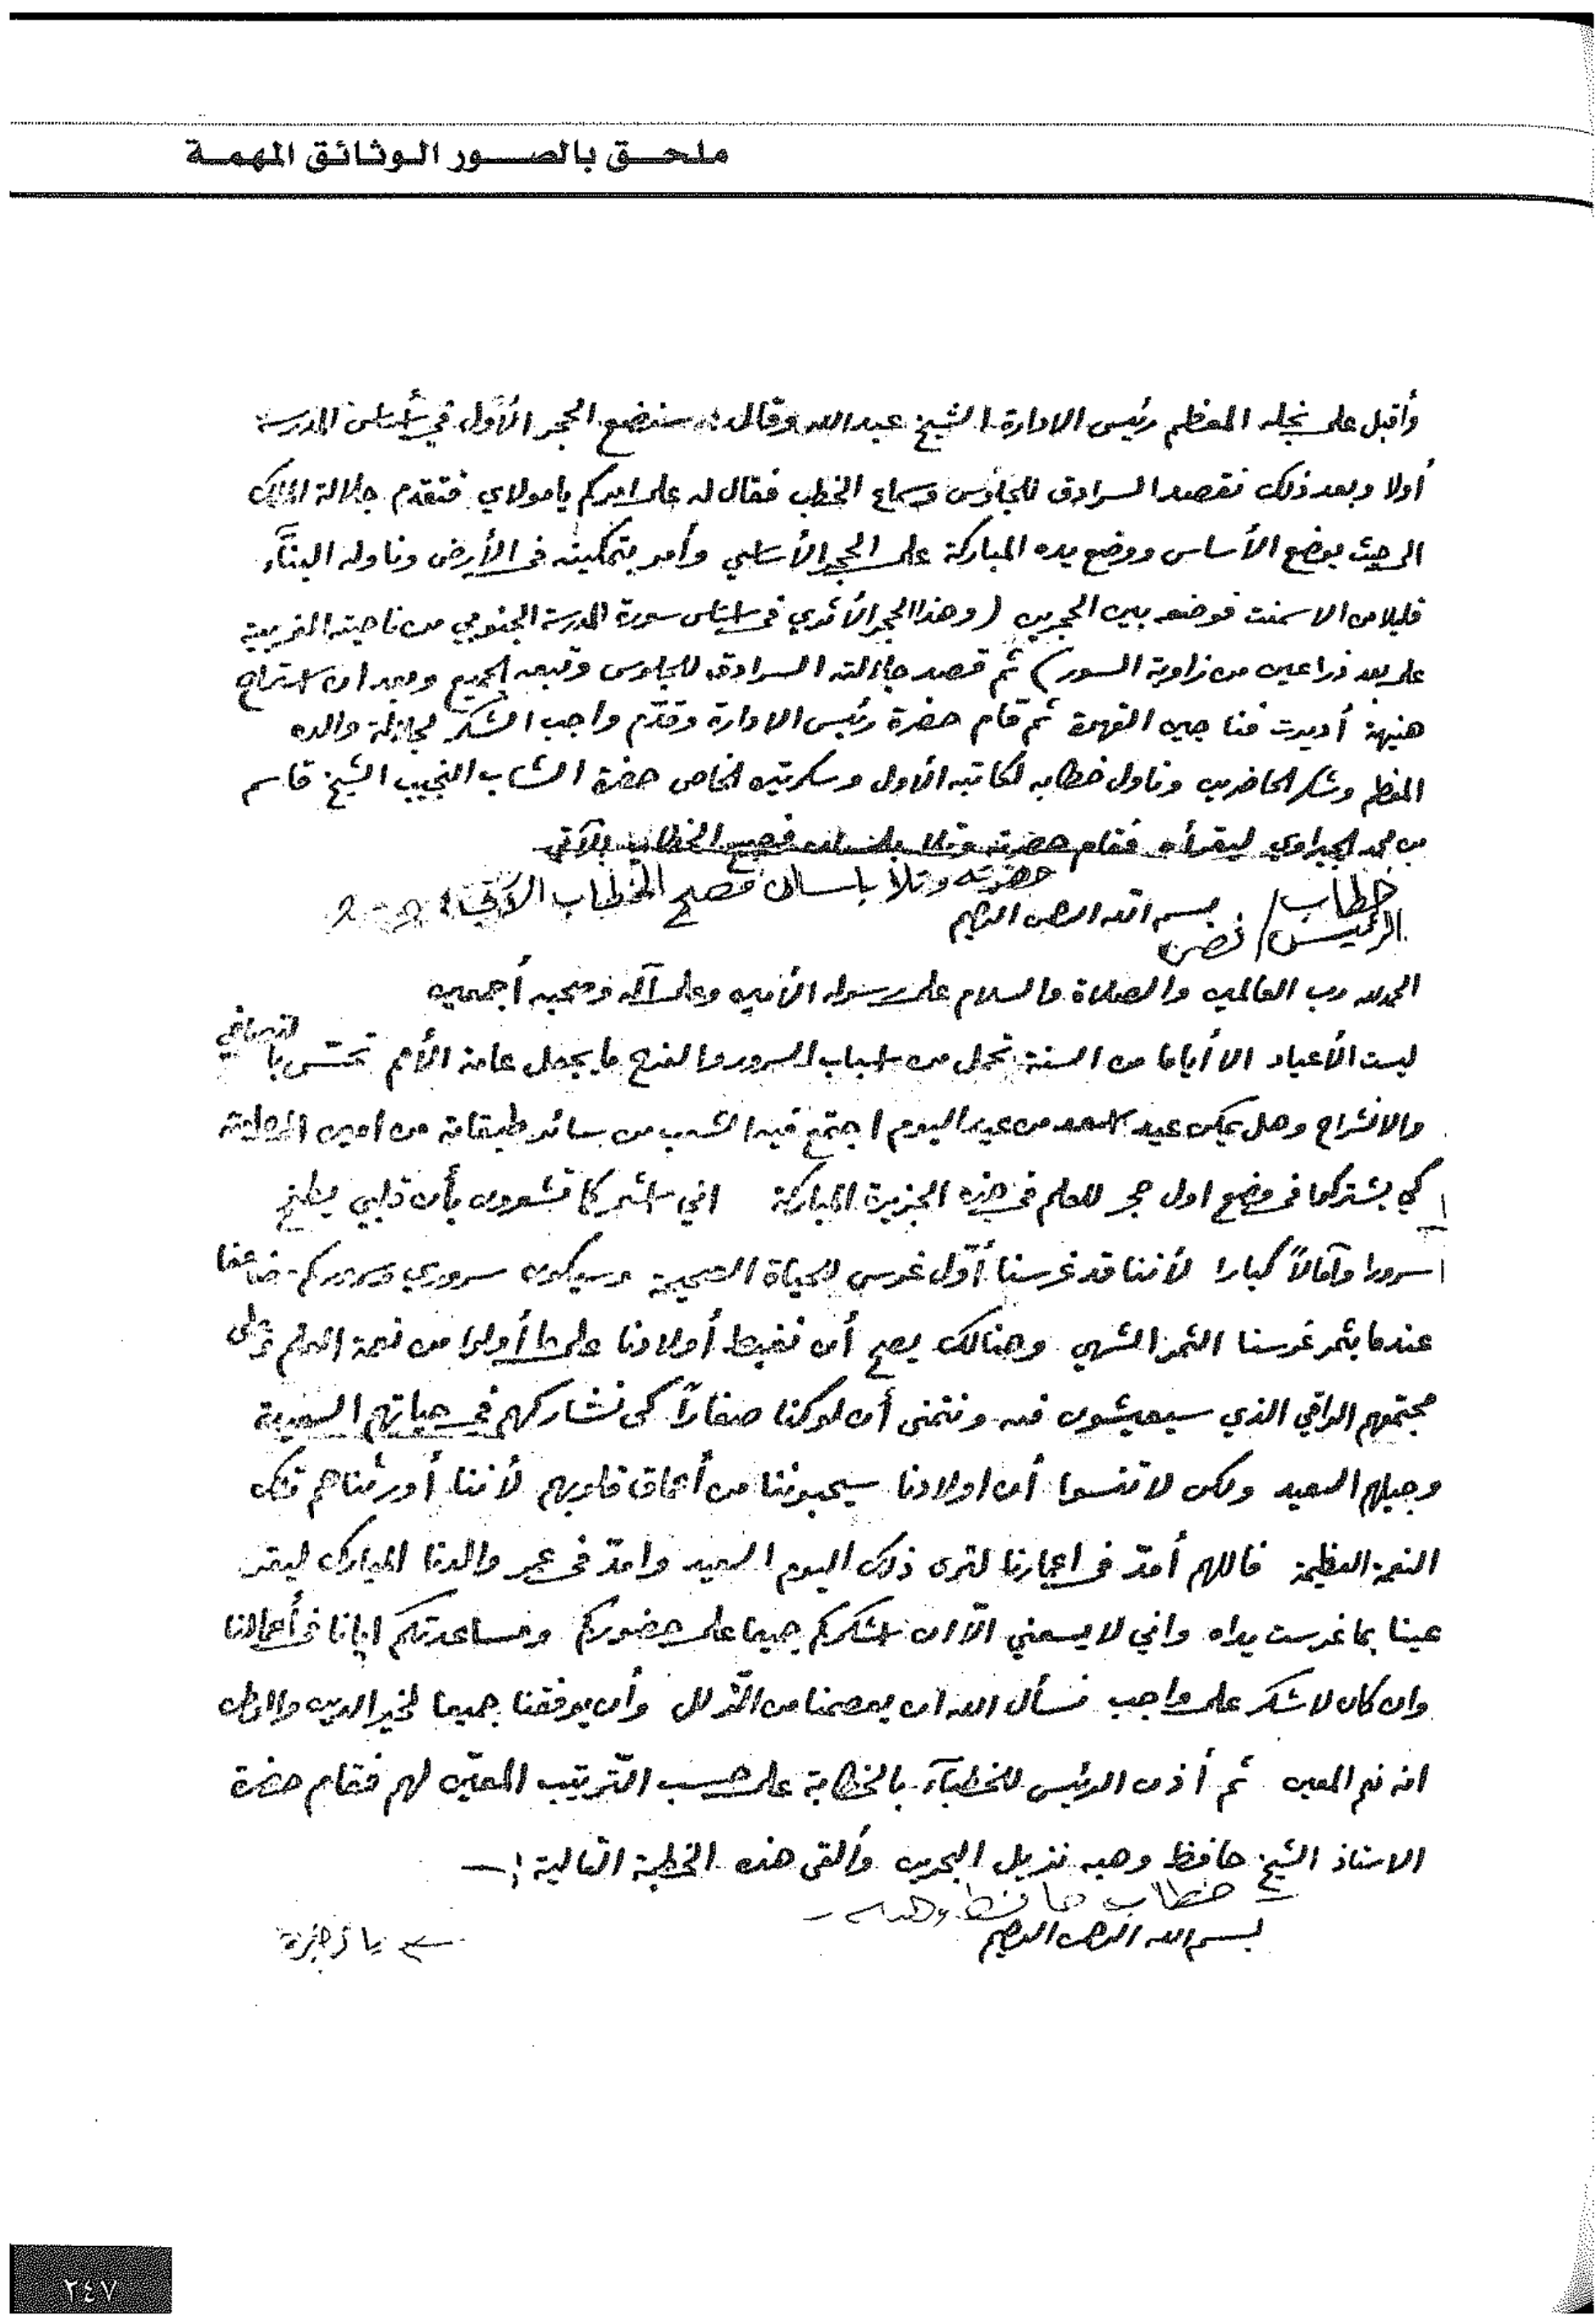 ملحق بالصور الوثائق المهمة
وأقبل على نجله المعظم رئيس الادارة الشيخ عبدالله وقال: سنضع الحجر الأول في أساس المدرسة
أولا وبعد ذلك نقصد السرادق للجلوس وسماع الخطب فقال له على امركم يا مولاي فتقدم جلالة الملك
الى حيث يوضع الأساس ووضع يده المباركة على الحجر الأساسي وأمر بتمكينه في الأرض وناوله البنّاء
قليلا من الاسمنت فوضعه بين الحجرين (وهذا الحجر الأثري في اساس سورة المدرسة الجنوبي من ناحيته الغربية
على بعد ذراعين من زاوية السور) ثم قصد جلالته السرادق للجلوس وتبعه الجميع وبعد ان استراح
هنيهة أديرت فناجين القهوة ثم قام حضرة رئيس الادارة وقدّم واجب الشكر لجلالة والده
المعظم وشكر الحاضرين وناول خطابه لكاتبه الأول وسكرتيره الخاص حضرة الشاب النجيب الشيخ قاسم
بن محمد الجيراوي ليقرأه فقام حضرته وتلا بلسان فصيح الخطاب الآتي
حضرته وتلا بلسان فصيح الخطاب الآتي:
خطاب/ بسم الله الرحمن الرحيم
الرئيس/ نص
الحمد لله رب العالمين والصلاة والسلام على رسوله الأمين وعلى آله وصحبه أجمعين
ليست الأعياد الا أياما من السنة تحمل من اسباب السرور والفرح ما يجعل عامة الأمم تحسّ بالتصافي
والانشراح وهل يمكن عيد اسعد من عيد اليوم اجتمع فيه الشعب من سائر طبقاته من امير
كي يشتركوا في وضع اول حجر للعلم في هذه الجزيرة المباركة اني اشعر كما تشعرون بأن قلبي يطفح
سرورا وآمالاً كبارا لأننا قد غرسنا أوّل غرس للحياة الصحيحة وسيكون سروري وسروركم مضاعفا
عندما يثمر غرسنا الثمر الشهي وهنالك يصح أن نغبط أولادنا على ما أولوا من نعمة العلم وعلى
مجتمعهم الراقي الذي سيعيشون فيه ونتمنى أن لو كنا صغاراً كي نشاركهم في حياتهم السعيدة
وجيلهم السعيد ولكن لا تنسوا أن اولادنا سيحبوننا من أعماق قلوبهم لأننا أورثناهم تلك
النعمة العظيمة فاللهم أمدّ في اعمارنا لنرى ذلك اليوم السعيد وامدّ في عمر والدنا المبارك ليقر
عينا بما غرست يداه واني لا يسعني الاّ ان اشكركم جميعا على حضوركم ومساعدتكم ايانا في أعمالنا
وان كان لا شكر على واجب فنسأل الله ان يعصمنا من الزّلل وأن يوفقنا جميعا لخير الدين والوطن
انه نعم المعين ثم أذن الرئيس للخطبآء بالخطابة على حسب التّرتيب المعيّن لهم فقام حضرة
الاستاذ الشيخ حافظ وهبه نزيل البحرين وألقى هذه الخطبة التالية:ـ
خطاب حافظ وهبه ـ
بسم الله الرحمن الرحيم
٢٤٧